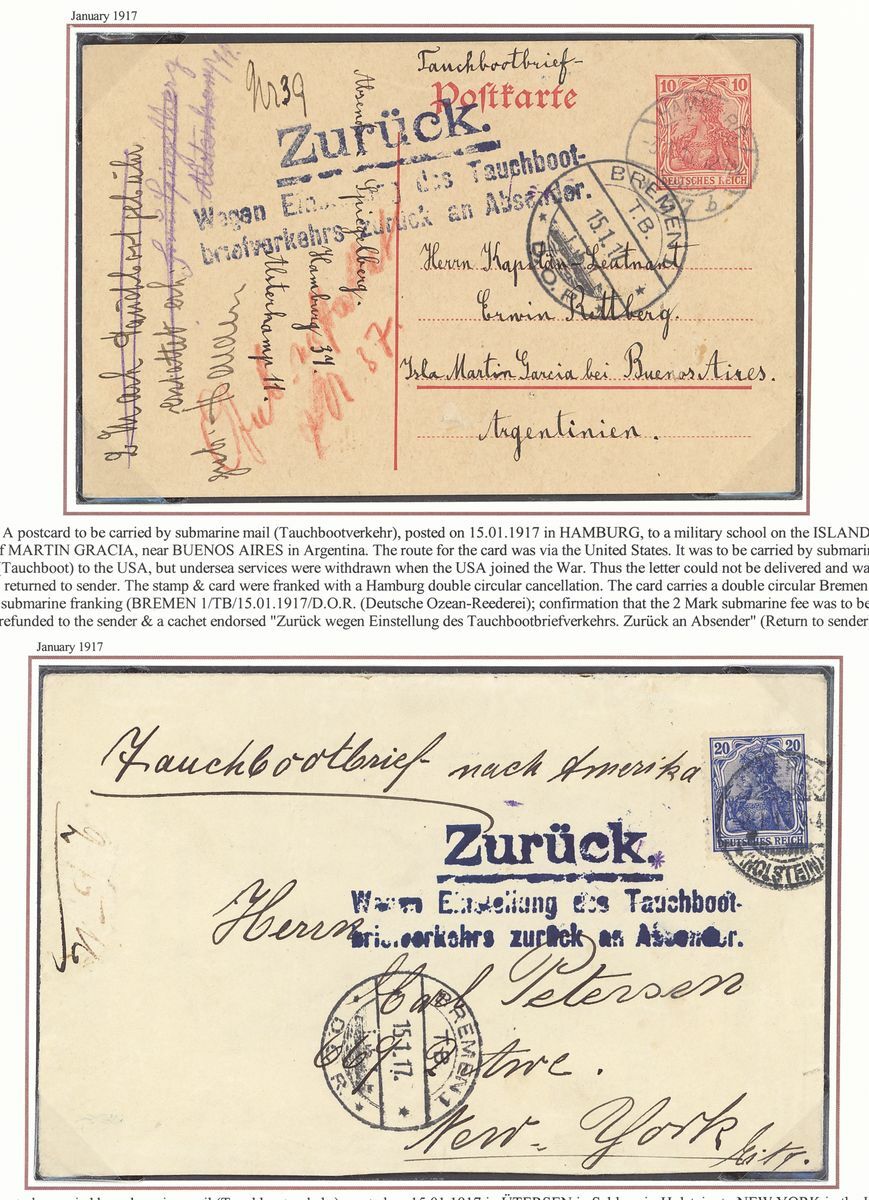 January 1917
Tauchbootbrief-
Postkarte
10 10
DEUTSCHES REICH
Nr 39
Zurück.
Wegen Einstellung des Tauchboot-
briefverkehrs zurück an Absender.
BREMEN 1
T.B.
15.1.17
D.O.R.
Herrn Kapitän-Leutnant
Erwin Rettberg.
Isla Martin Garcia bei Buenos Aires.
Argentinien.
Absender
Spiegelberg.
Hamburg 37.
Alsterkamp 11.
2 Mark Tauchbootgebühr
A postcard to be carried by submarine mail (Tauchbootverkehr), posted on 15.01.1917 in HAMBURG, to a military school on the ISLAND
f MARTIN GRACIA, near BUENOS AIRES in Argentina. The route for the card was via the United States. It was to be carried by submarin
(Tauchboot) to the USA, but undersea services were withdrawn when the USA joined the War. Thus the letter could not be delivered and wa
returned to sender. The stamp & card were franked with a Hamburg double circular cancellation. The card carries a double circular Bremen
submarine franking (BREMEN 1/TB/15.01.1917/D.O.R. (Deutsche Ozean-Reederei); confirmation that the 2 Mark submarine fee was to be
refunded to the sender & a cachet endorsed "Zurück wegen Einstellung des Tauchbootbriefverkehrs. Zurück an Absender" (Return to sender
January 1917
Tauchbootbrief nach Amerika
20 20
DEUTSCHES REICH
(HOLSTEIN)
Zurück.
Wegen Einstellung des Tauchboot-
briefverkehrs zurück an Absender.
Herrn
Carl Petersen
New-York
BREMEN 1
T.B.
15.1.17.
D.O.R.